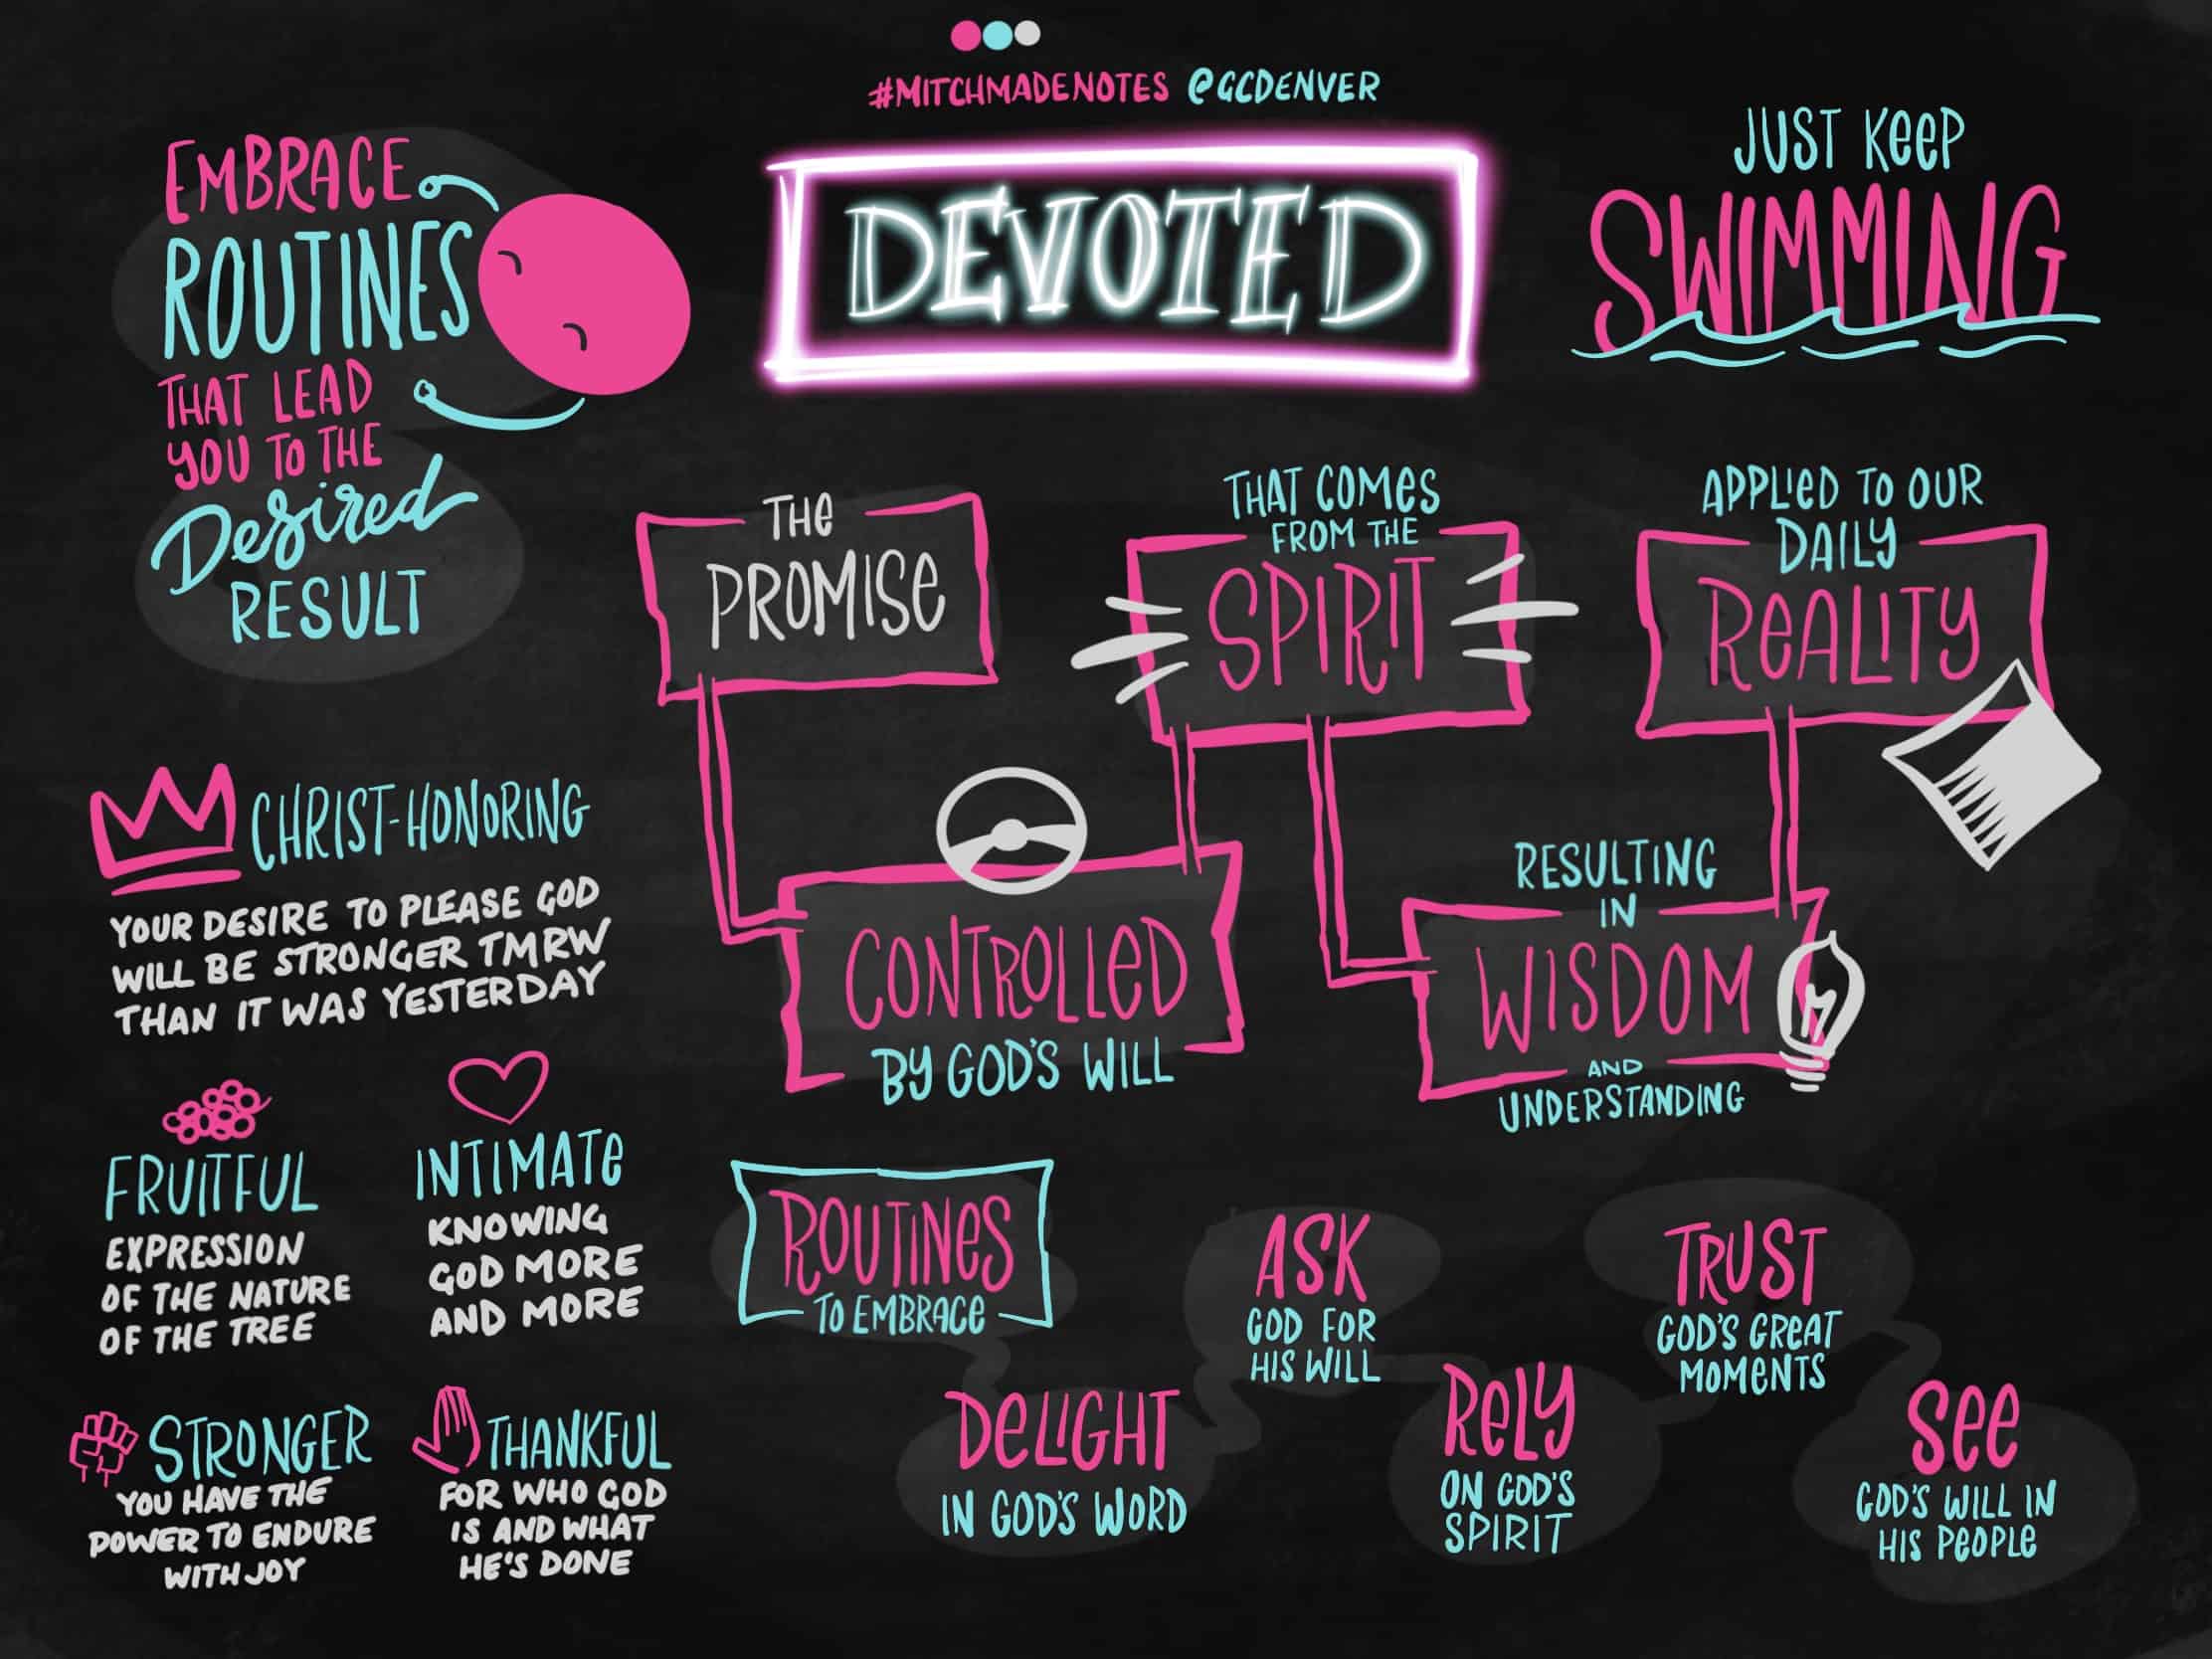 #MITCHMADENOTES @GCDENVER
DEVOTED
EMBRACE
ROUTINES
THAT LEAD
YOU TO THE
Desired
RESULT
JUST KEEP
SWIMMING
THE
PROMISE
CONTROLLED
BY GOD'S WILL
THAT COMES
FROM THE
SPIRIT
RESULTING
IN
WISDOM
AND
UNDERSTANDING
APPLIED TO OUR
DAILY
REALITY
CHRIST-HONORING
YOUR DESIRE TO PLEASE GOD
WILL BE STRONGER TMRW
THAN IT WAS YESTERDAY
FRUITFUL
EXPRESSION
OF THE NATURE
OF THE TREE
INTIMATE
KNOWING
GOD MORE
AND MORE
STRONGER
YOU HAVE THE
POWER TO ENDURE
WITH JOY
THANKFUL
FOR WHO GOD
IS AND WHAT
HE'S DONE
ROUTINES
TO EMBRACE
DELIGHT
IN GOD'S WORD
ASK
GOD FOR
HIS WILL
RELY
ON GOD'S
SPIRIT
TRUST
GOD'S GREAT
MOMENTS
SEE
GOD'S WILL IN
HIS PEOPLE